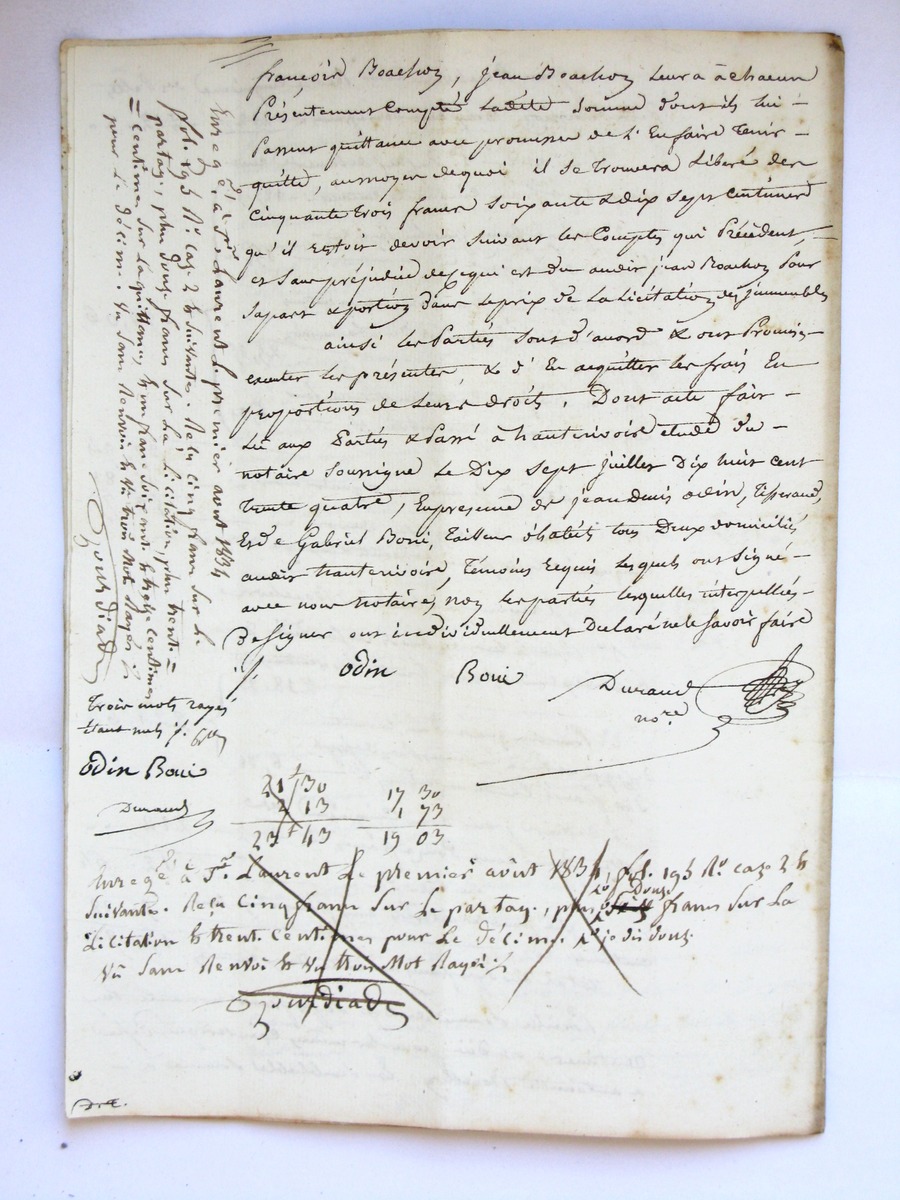 françois Boachon, jean Boachon Leur a à chacun
Présentement Compté Ladite Somme dont ils lui -
Passent quittance avec promesse de l'En faire Tenir -
quitte, au moyen de quoi il Se trouvera Libéré des
Cinquante trois francs Soixante & dix Sept Centimes
qu'il Restoit devoir Suivant les Comptes qui Précèdent, -
et Sans préjudice de ce qui est Du audit jean Boachon Pour
Sa part & portion dans Le prix de La Licitation des jmmeubles
ainsi les Parties Sont d'accord & ont Promis
executer les présentes, & d'En acquitter les frais En
proportions de Leurs droits. Dont acte fait -
Lu aux Parties & Passé à hauterivoire etude du -
notaire Soussigné Le Dix Sept juillet Dix huit cent
trente quatre, En présence de jean denis odin, Tisserand,
Et de Gabriel Boni, Tailleur d'habits tous Deux domiciliés
audit hauterivoire, Témoins requis Lesquels ont Signé -
avec nous notaire, non les parties lesquelles interpellées -
De Signer ont individuellement Déclaré ne le Savoir faire
odin Boni Durand
no.re
Enreg.é à S.t Laurent Le premier août 1834
fol. 195 R.o case 2 & Suivantes. Reçu cinq francs Sur Le
partag., plus douze francs Sur La Licitation, plus trent. =
= centimes Sur La quittance, & un franc Soixant. & treize centimes
pour Le Décim. Vu Sans Renvoi & Vu trois Mot Rayés
Gourdiade
Trois mots rayés
étant nuls
odin Boni
Durand
21 30 17 30
2 13 1 73
23 43 19 03
Enreg.é à S.t Laurent Le premier août 1834, fol. 195 R.o case 2 &
Suivantes. Reçu Cinq francs Sur Le partag., plus Douze francs Sur La
Licitation & trent. Centimes pour Le Décim. je dis douz.
Vu Sans Renvoi & Vu trois Mot Rayés
Gourdiade